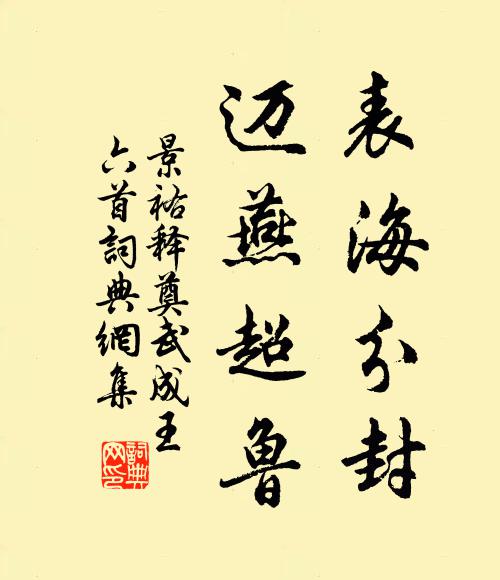 表海分封
迈燕超鲁
景祐释奠武成王
六首詞典網集
詞典
网印